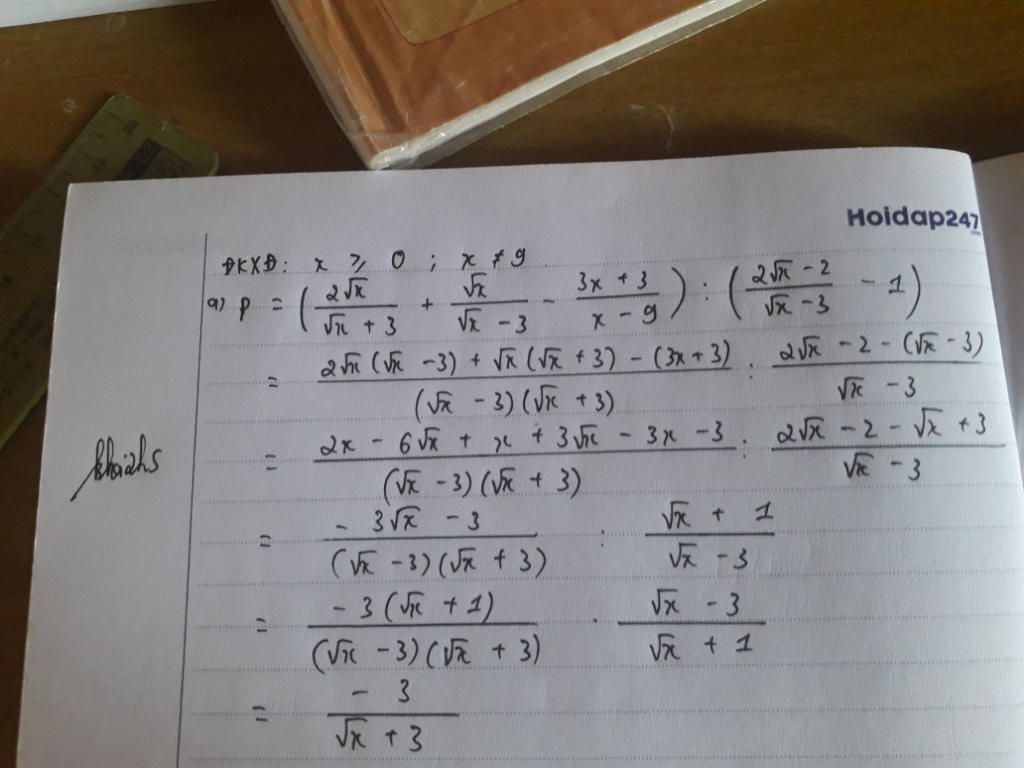 Hoidap247
.com
ĐKXĐ: x ≥ 0 ; x ≠ 9
a) P = (2√x / (√x + 3) + √x / (√x - 3) - (3x + 3) / (x - 9)) : ((2√x - 2) / (√x - 3) - 1)
= (2√x (√x - 3) + √x (√x + 3) - (3x + 3)) / ((√x - 3) (√x + 3)) : (2√x - 2 - (√x - 3)) / (√x - 3)
= (2x - 6√x + x + 3√x - 3x - 3) / ((√x - 3) (√x + 3)) : (2√x - 2 - √x + 3) / (√x - 3)
= (- 3√x - 3) / ((√x - 3) (√x + 3)) : (√x + 1) / (√x - 3)
= (- 3 (√x + 1)) / ((√x - 3) (√x + 3)) . (√x - 3) / (√x + 1)
= - 3 / (√x + 3)